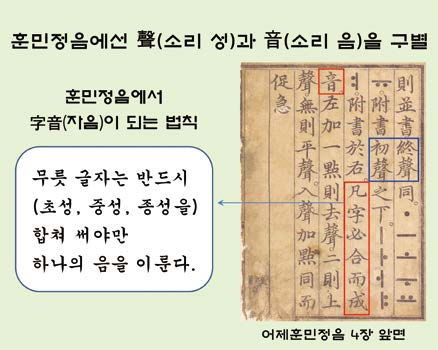 훈민정음에선 聲(소리 성)과 音(소리 음)을 구별
훈민정음에서
字音(자음)이 되는 법칙
무릇 글자는 반드시
(초성, 중성, 종성을)
합쳐 써야만
하나의 음을 이룬다.
則並書終聲同。ㆍㅡㅗㅜㅛ
ㅠ附書初聲之下。ㅣㅏㅓㅑ
ㅕ附書於右。凡字必合而成
音左加一點則去聲。二則上
聲。無則平聲。入聲加點同而
促急
어제훈민정음 4장 앞면